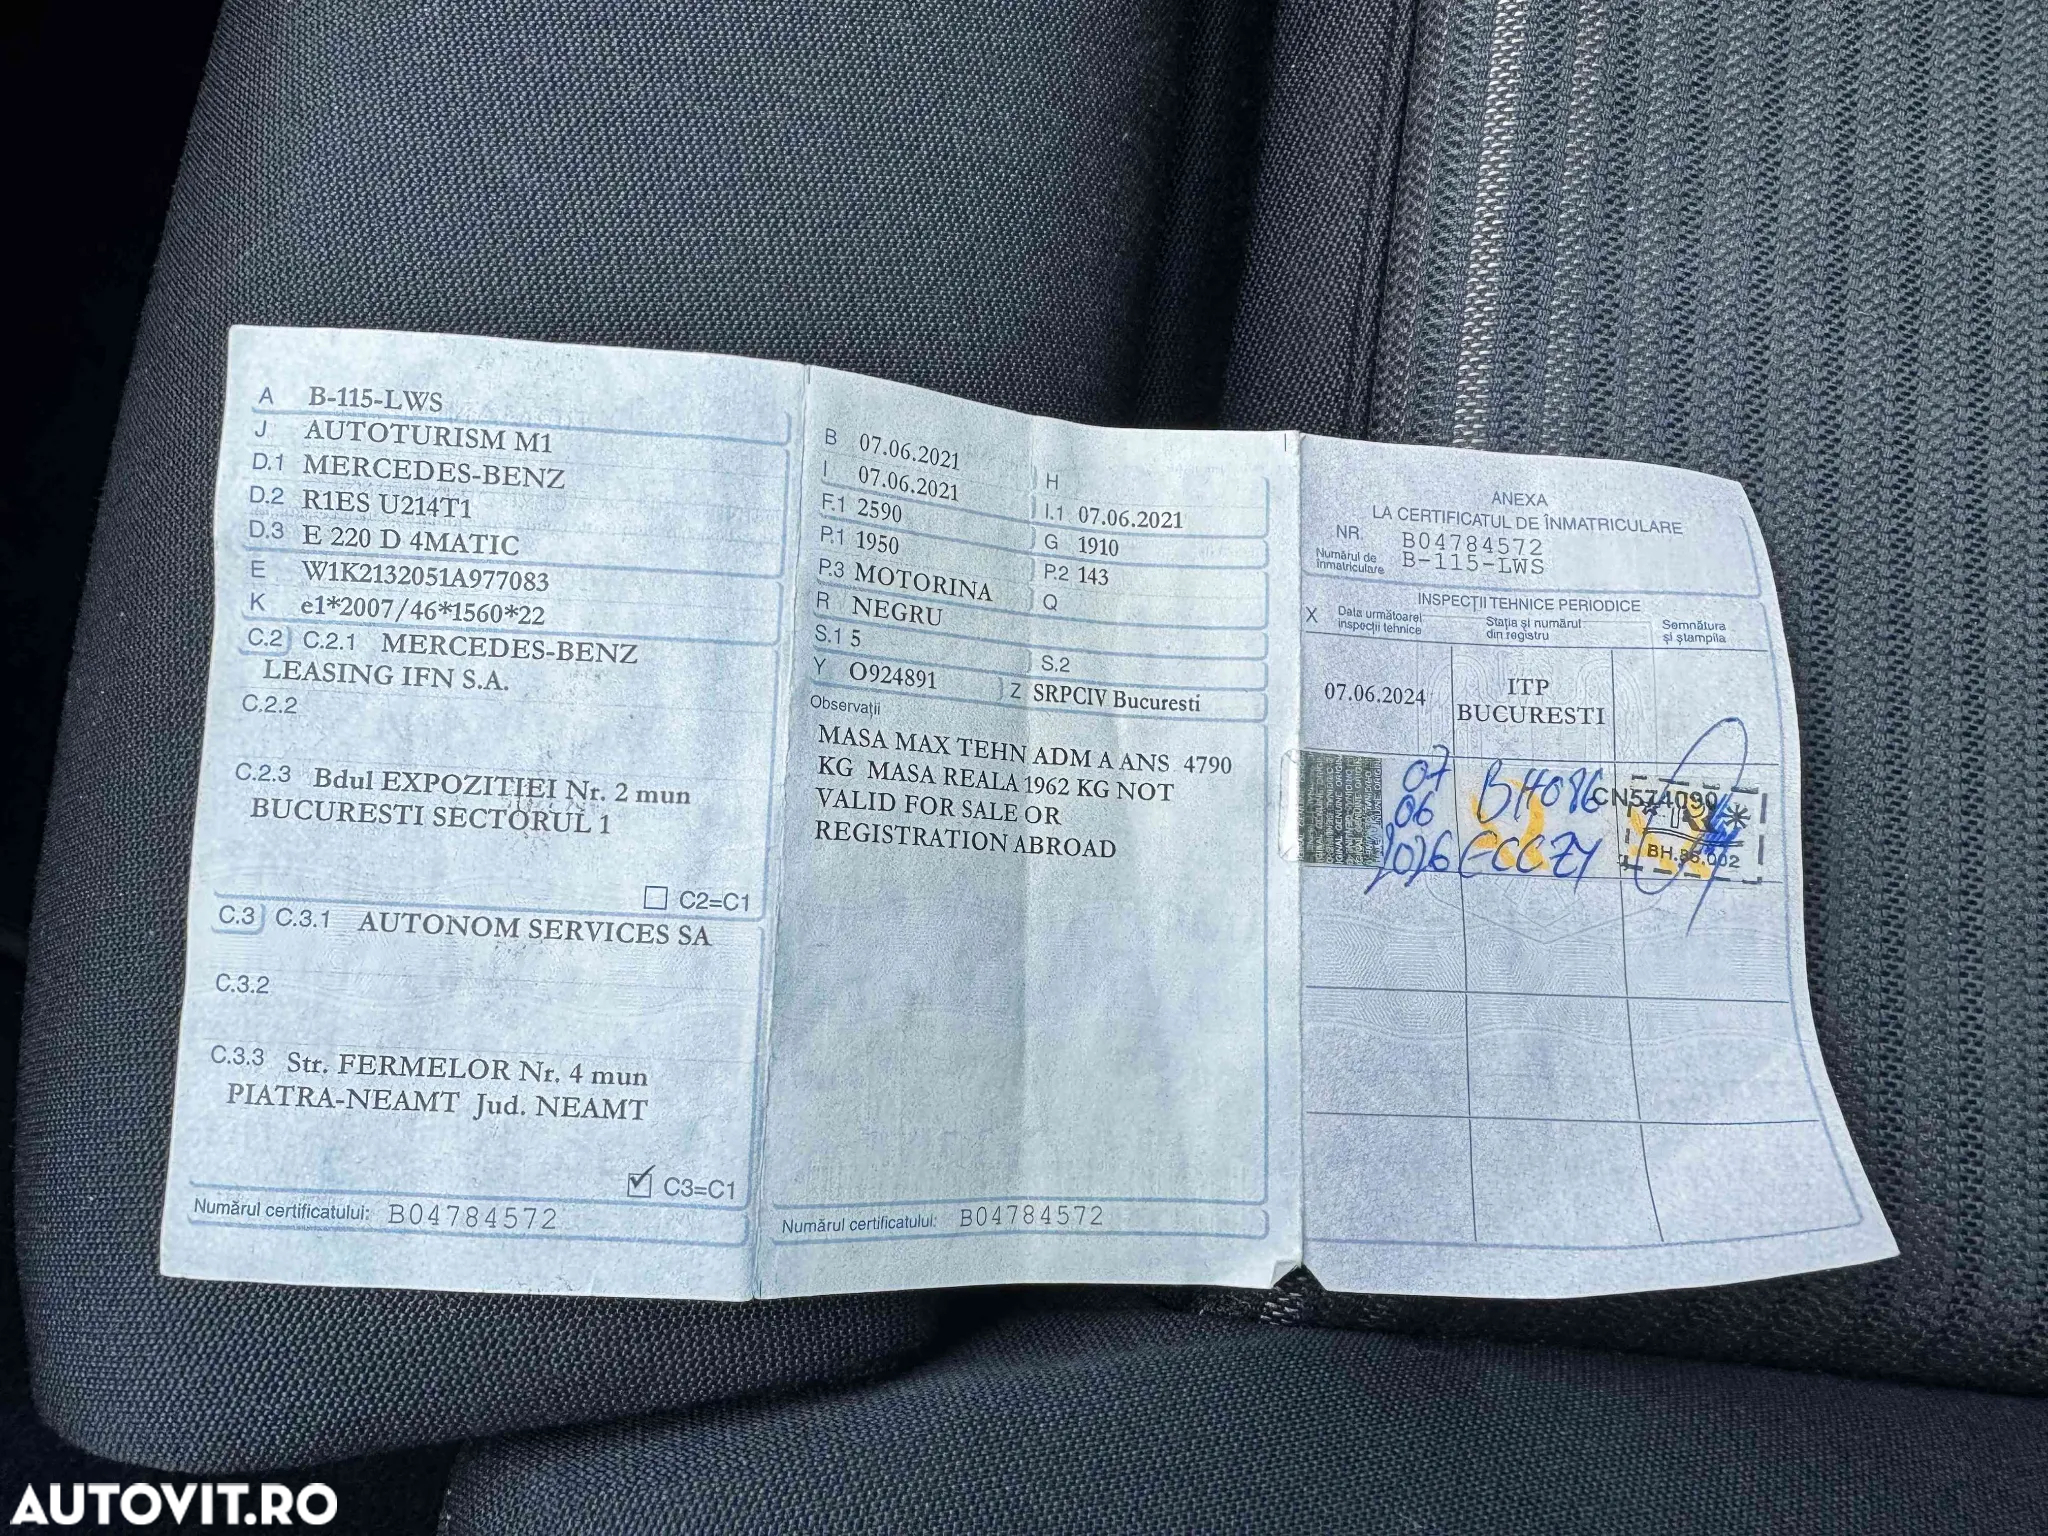 A B-115-LWS
J AUTOTURISM M1
D.1 MERCEDES-BENZ
D.2 R1ES U214T1
D.3 E 220 D 4MATIC
E W1K2132051A977083
K e1*2007/46*1560*22
C.2 C.2.1 MERCEDES-BENZ
LEASING IFN S.A.
C.2.2
C.2.3 Bdul EXPOZITIEI Nr. 2 mun
BUCURESTI SECTORUL 1
C2=C1
C.3 C.3.1 AUTONOM SERVICES SA
C.3.2
C.3.3 Str. FERMELOR Nr. 4 mun
PIATRA-NEAMT Jud. NEAMT
C3=C1
Numărul certificatului: B04784572
B 07.06.2021 H
I 07.06.2021 I.1 07.06.2021
F.1 2590 G 1910
P.1 1950 P.2 143
P.3 MOTORINA Q
R NEGRU
S.1 5 S.2
Y O924891 Z SRPCIV Bucuresti
Observații
MASA MAX TEHN ADM A ANS 4790
KG MASA REALA 1962 KG NOT
VALID FOR SALE OR
REGISTRATION ABROAD
Numărul certificatului: B04784572
ANEXA
LA CERTIFICATUL DE ÎNMATRICULARE
NR. B04784572
Numărul de înmatriculare B-115-LWS
INSPECȚII TEHNICE PERIODICE
X Data următoarei inspecții tehnice
Stația și numărul din registru
Semnătura și ștampila
07.06.2024 ITP BUCURESTI
07
06
2026
CN574090
AUTOVIT.RO